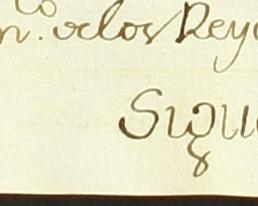 co
n. de los Reye
Sigue